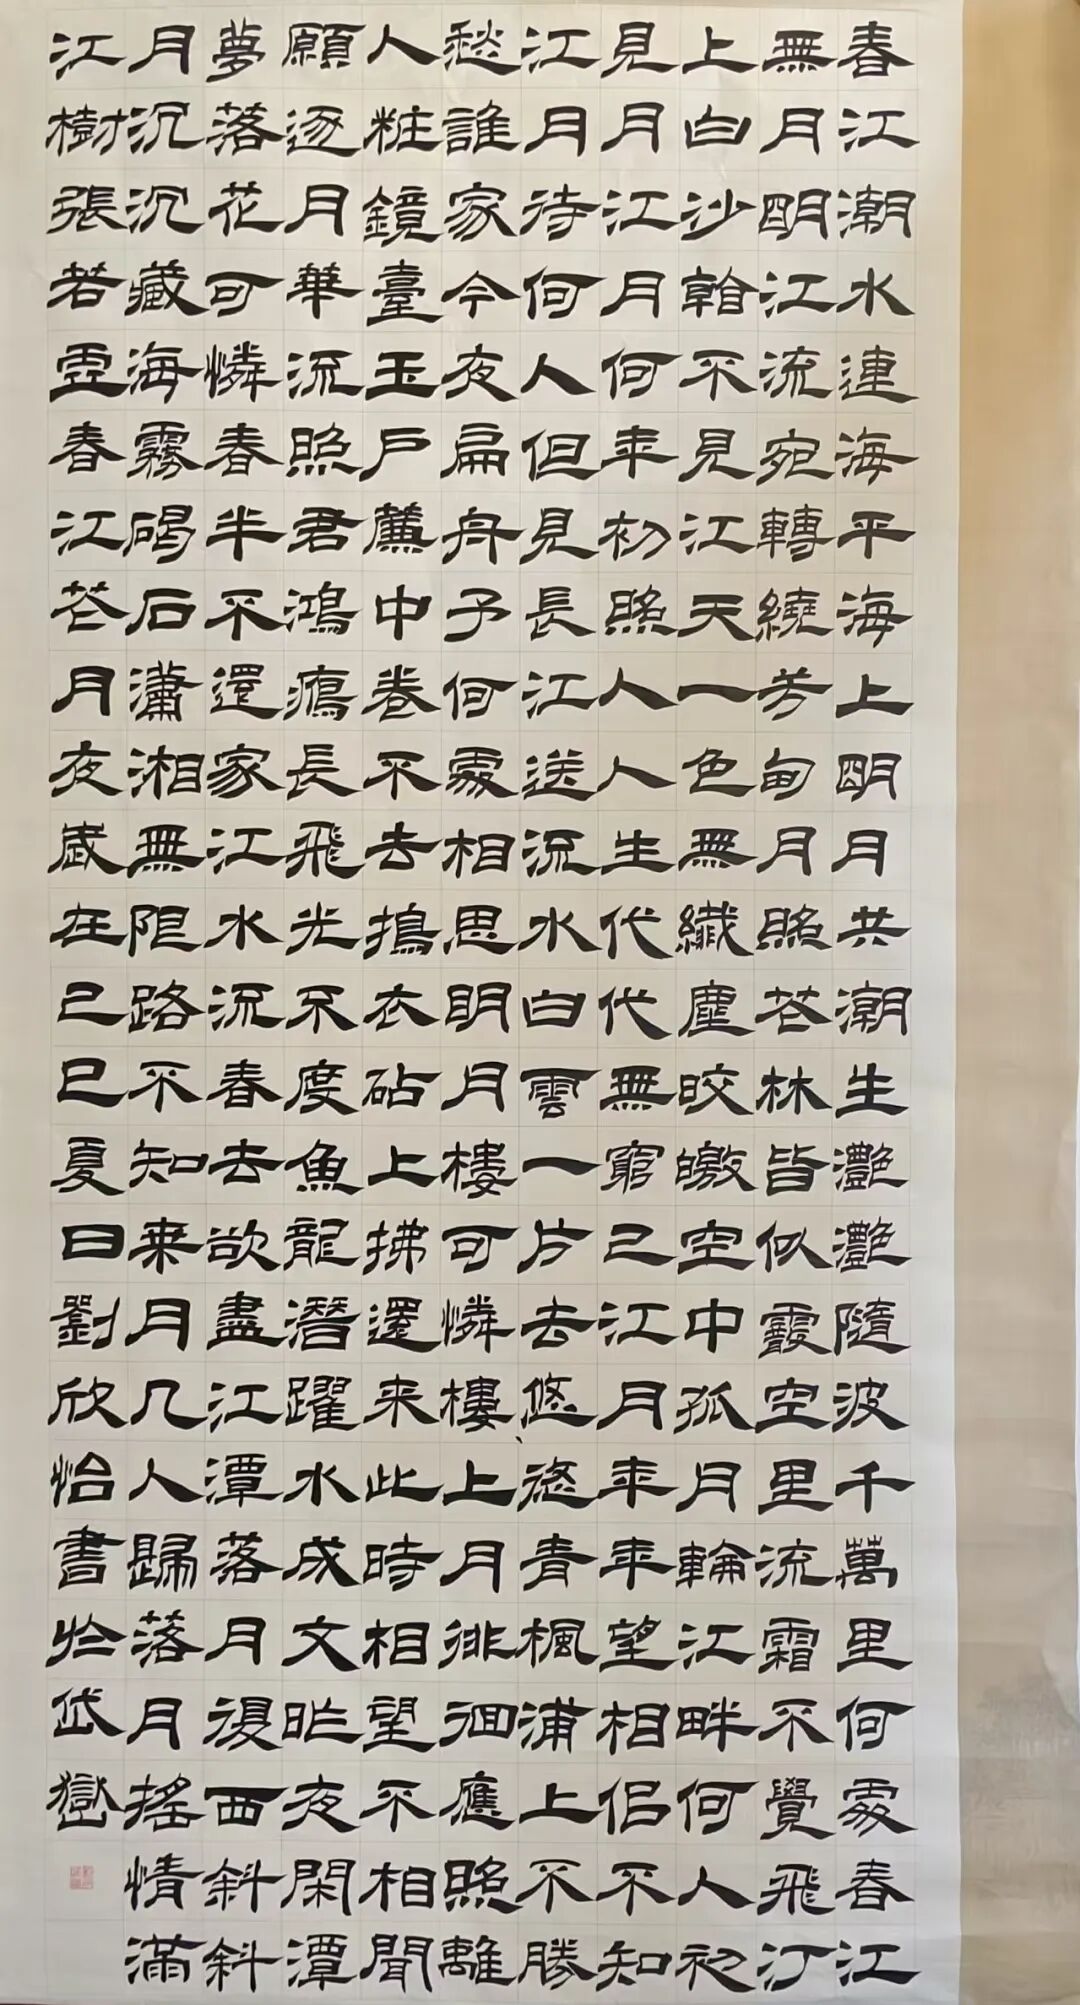 春江潮水連海平海上明月共潮生灧灧隨波千萬里何處春江
無月明江流宛轉繞芳甸月照花林皆似霰空里流霜不覺飛汀
上白沙看不見江天一色無纖塵皎皦空中孤月輪江畔何人初
見月江月何年初照人人生代代無窮已江月年年望相佀不知
江月待何人但見長江送流水白雲一片去悠悠青楓浦上不勝
愁誰家今夜扁舟子何處相思明月樓可憐樓上月徘徊應照離
人粧鏡臺玉戶簾中卷不去搗衣砧上拂還来此時相望不相聞
願逐月華流照君鴻鴈長飛光不度魚龍潛躍水成文昨夜閑潭
夢落花可憐春半不還家江水流春去欲盡江潭落月復西斜斜
月沉沉藏海霧碣石瀟湘無限路不知来月几人歸落月搖情滿
江樹張若虛春江花月夜歲在己巳夏日劉欣怡書於岱嶽